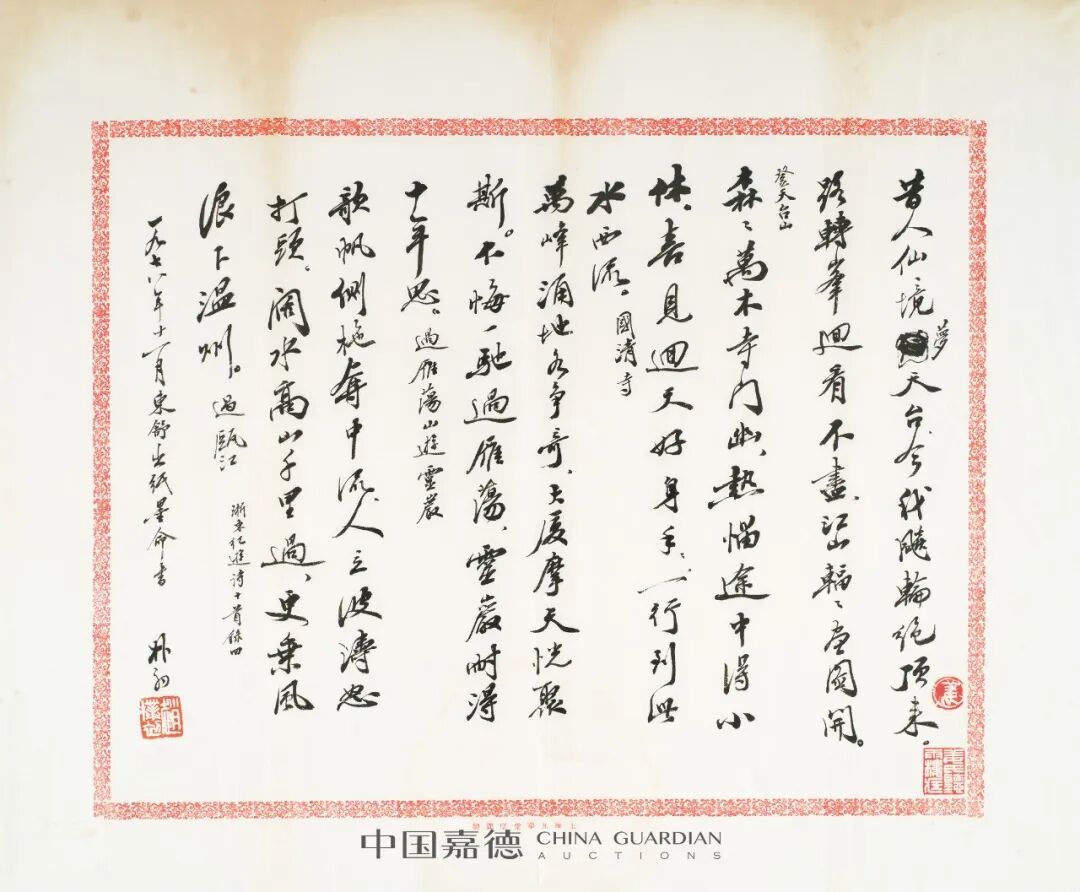 昔人仙境夢天台、今我飈輪绝頂来。
路轉峯迴看不盡、江山幅〻画图開。
登天台山
森〻萬木寺門幽、热惱途中得小
休、喜見迴天好身手、一行到此
水西流。國清寺
萬峰涌地各争奇、大厦摩天恍聚
斯。不悔一馳過雁蕩、靈巖酎得
十年思。過雁蕩山遊靈巖
歌帆側柂奪中流、人立波濤怒
打頭、闊水高山千里過、更乗風
浪下温州。過甌江
浙東纪遊诗十首錄四
一九七八年十一月東舒出纸墨命書
朴初
中国嘉德 CHINA GUARDIAN
AUCTIONS